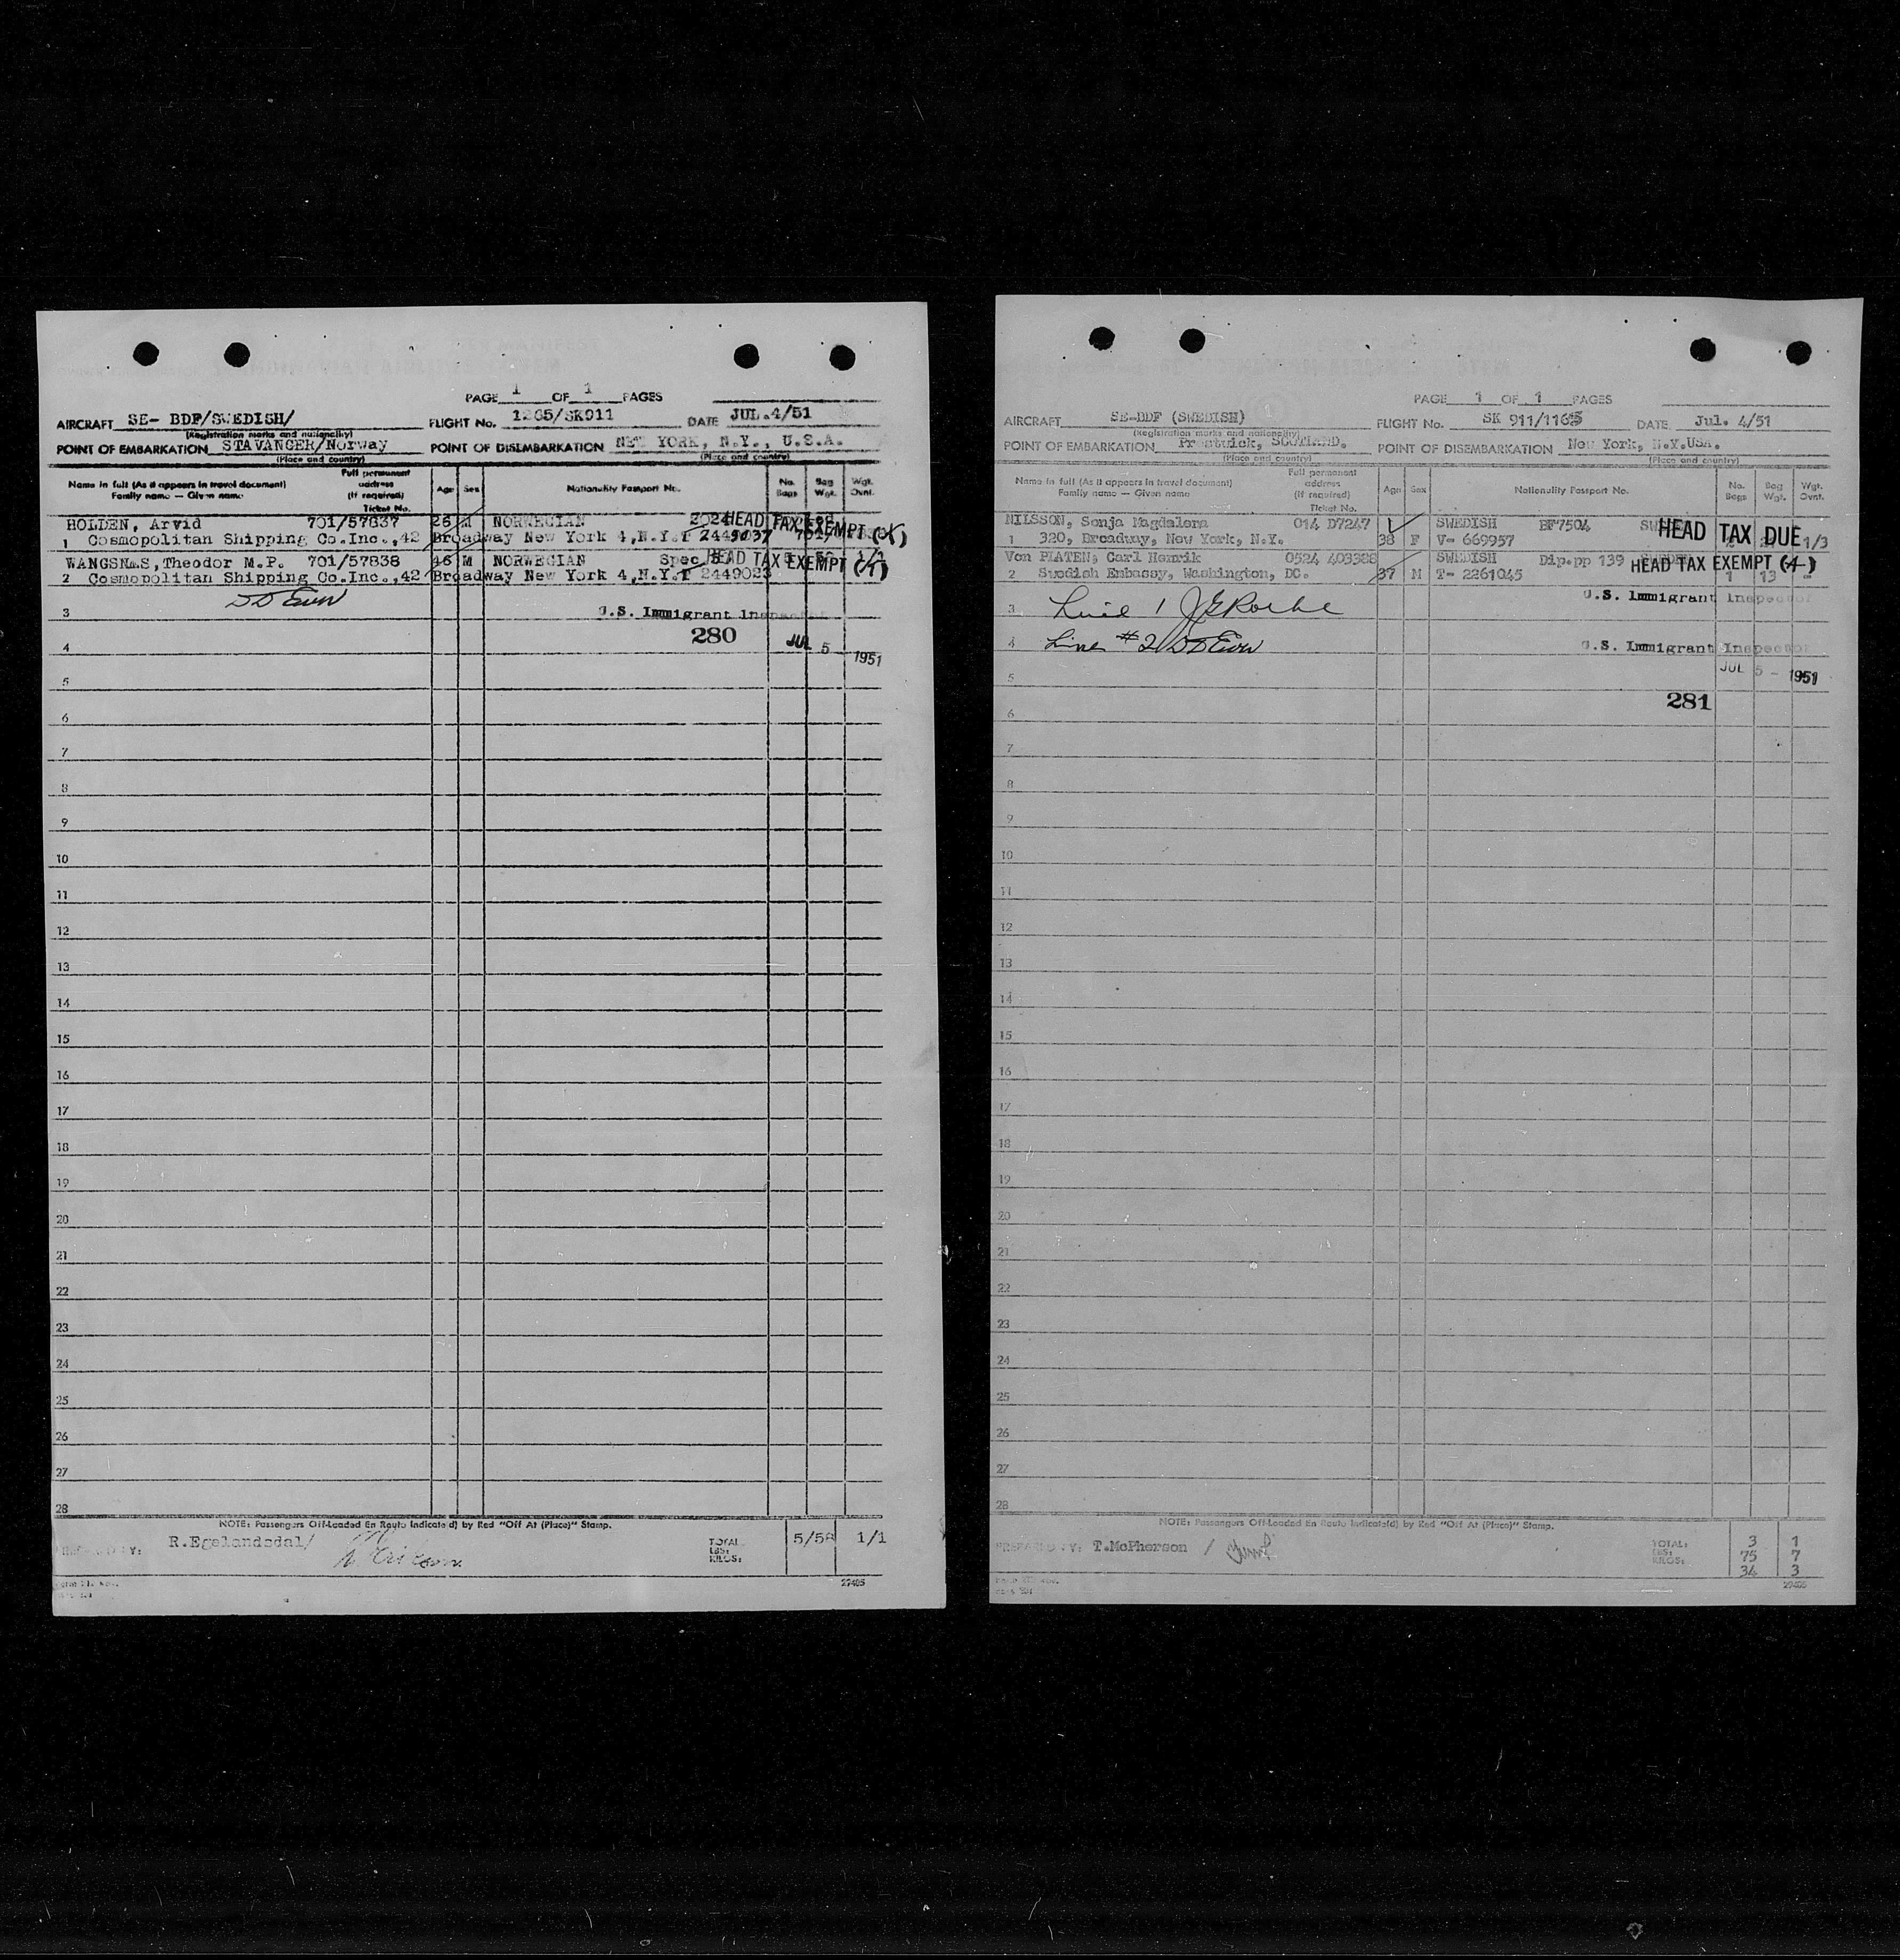 PAGE 1 OF 1 PAGES
AIRCRAFT SE- BDF/SWEDISH/ FLIGHT No. /SK911 DATE JUL.4/51
(Registration marks and nationality)
POINT OF EMBARKATION STAVANGER/Norway POINT OF DISEMBARKATION NEW YORK, N.Y., U.S.A.
(Place and country) (Place and country)
Name in full (As it appears in travel document) Family name — Given name Full permanent address (If required) Ticket No. Age Sex Nationality Passport No. No. Bags Bag Wgt. Wgt. Ovnt.
HOLDEN, Arvid 701/57837 26 M NORWEGIAN HEAD TAX EXEMPT
1 Cosmopolitan Shipping Co.Inc.,42 Broadway New York 4,N.Y.T 2449037
WANGSNES,Theodor M.P. 701/57838 46 M NORWEGIAN Spec HEAD TAX EXEMPT 1/1
2 Cosmopolitan Shipping Co.Inc.,42 Broadway New York 4,N.Y.T 2449023
3 U.S. Immigrant Inspector
280 JUL 5 - 1951
4
5
6
7
8
9
10
11
12
13
14
15
16
17
18
19
20
21
22
23
24
25
26
27
28
NOTE: Passengers Off-Loaded En Route Indicate(d) by Red "Off At (Place)" Stamp.
PREPARED BY: R.Egelandsdal/ TOTAL LBS: KILOS: 5/58 1/1
27405
PAGE 1 OF 1 PAGES
AIRCRAFT SE-BDF (SWEDISH) FLIGHT No. SK 911/1165 DATE Jul. 4/51
(Registration marks and nationality)
POINT OF EMBARKATION Prestwick, SCOTLAND. POINT OF DISEMBARKATION New York, N.Y.USA.
(Place and country) (Place and country)
Name in full (As it appears in travel document) Family name — Given name Full permanent address (If required) Ticket No. Age Sex Nationality Passport No. No. Bags Bag Wgt. Wgt. Ovnt.
NILSSON, Sonja Magdalena 014 D7247 SWEDISH BF7504 HEAD TAX DUE 1/3
1 320, Broadway, New York, N.Y. 38 F V- 669957
Von PLATEN, Carl Henrik 0524 403388 SWEDISH Dip.pp 139 HEAD TAX EXEMPT (4)
2 Swedish Embassy, Washington, DC. 37 M T- 2261045 1 13 -
U.S. Immigrant Inspector
3 Line 1 J G Roche
4 Line #2 U.S. Immigrant Inspector
JUL 5 - 1951
5
281
6
7
8
9
10
11
12
13
14
15
16
17
18
19
20
21
22
23
24
25
26
27
28
NOTE: Passengers Off-Loaded En Route Indicate(d) by Red "Off At (Place)" Stamp.
PREPARED BY: T.McPherson / TOTAL: 3 1
LBS: 75 7
KILOS: 34 3
27405